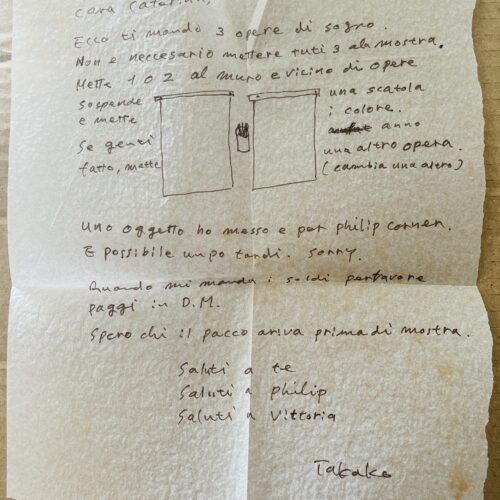 cara Caterina,
Ecco ti mando 3 opere di sogno.
Non e neccesario mettere tuti 3 ala mostra.
Mette 1 o 2 al muro e vicino di opere
sospende
e mette
una scatola
i colore.
Se genti
fatto, mette
anno
una altro opera.
(cambia una altro)
Uno oggetto ho messo e par philip corner.
E possibile un po tardi. Sorry.
Quando mi manda i soldi perfavore
paggi in D.M.
Spero chi il pacco ariva prima di mostra.
Saluti a te
Saluti a philip
Saluti a Vittoria
Takako